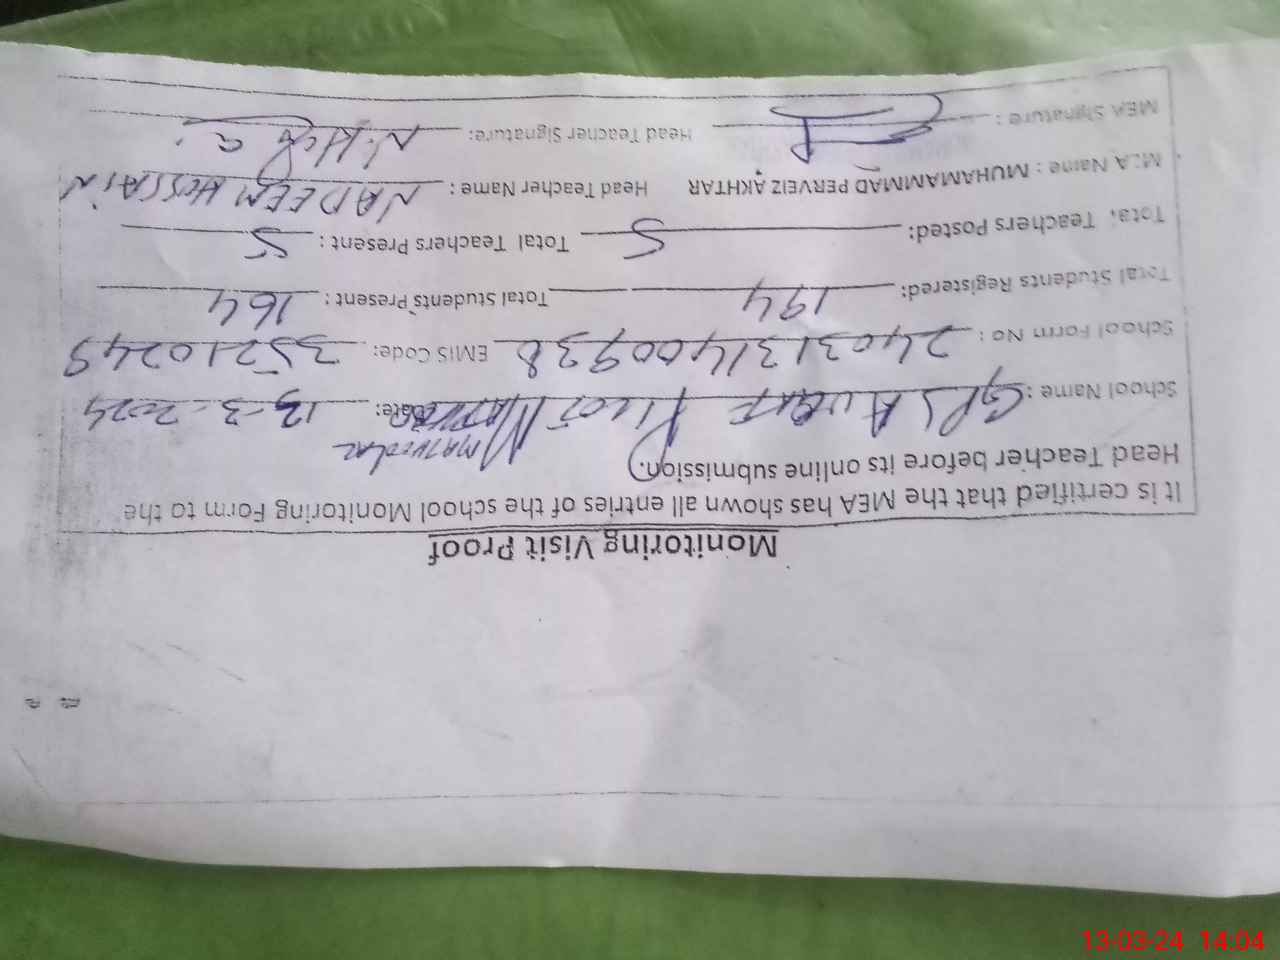 Monitoring Visit Proof
It is certified that the MEA has shown all entries of the school Monitoring Form to the
Head Teacher before its online submission.
School Name : GPS Pilot Date: 13-3-2024
School Form No : 2403131400938 EMIS Code: 35210249
Total Students Registered: 194 Total Students Present : 164
Total Teachers Posted: 5 Total Teachers Present : 5
MEA Name : MUHAMMAD PERVEIZ AKHTAR Head Teacher Name : NADEEM HUSSAIN
MEA Signature : Head Teacher Signature:
13-03-24 14:04